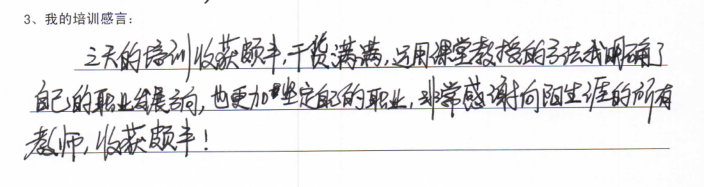 3、我的培训感言:
三天的培训收获颇丰,干货满满,运用课堂教授的方法我明确了
自己的职业发展方向,也更加坚定自己的职业,非常感谢向阳生涯的所有
教师,收获颇丰!